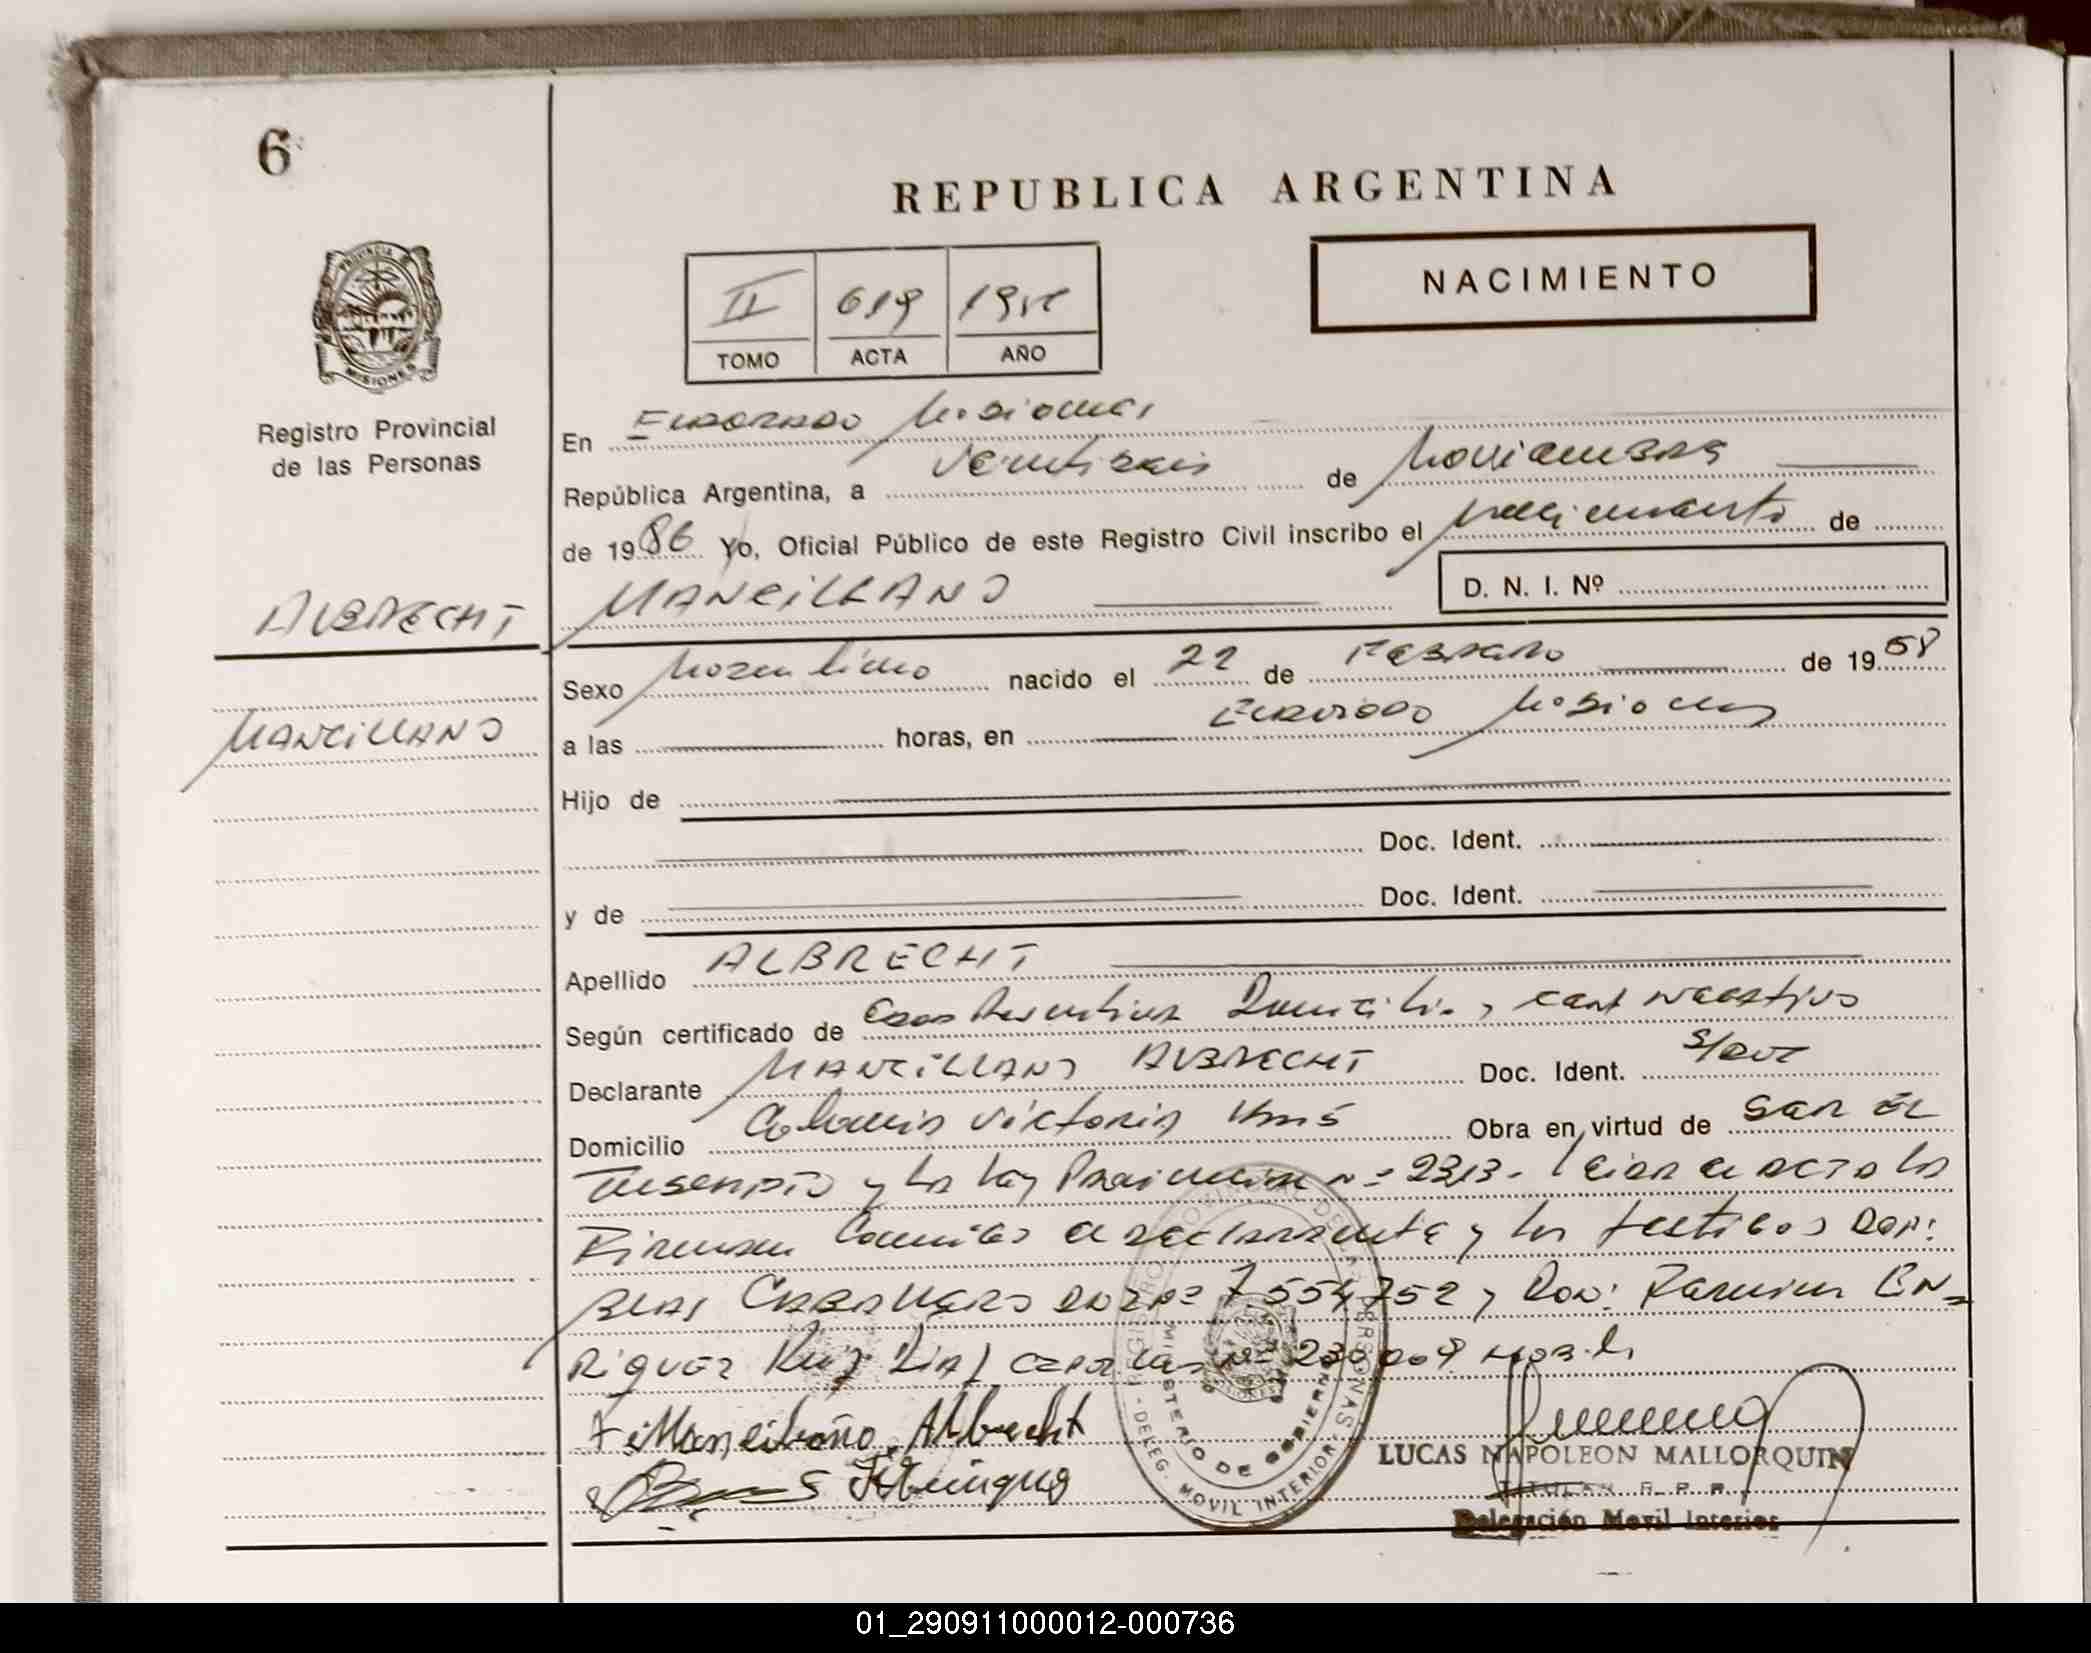 6
REPUBLICA ARGENTINA
NACIMIENTO
II 619
TOMO ACTA AÑO
PROVINCIA DE MISIONES
Registro Provincial
de las Personas
En Eldorado Misiones
República Argentina, a veintiseis de Noviembre
de 1986 Yo, Oficial Público de este Registro Civil inscribo el nacimiento de
MARCILIANO
D. N. I. Nº
ALBRECHT
MARCILIANO
Sexo Masculino nacido el 22 de Febrero de 1958
a las horas, en Eldorado Misiones
Hijo de
Doc. Ident.
y de Doc. Ident.
Apellido ALBRECHT
Según certificado de
Declarante MARCILIANO ALBRECHT Doc. Ident.
Domicilio Colonia Victoria Km 5 Obra en virtud de ser el
inscripto y la ley Provincial nº 2313. Leida el acta la
Firman conmigo el declarante y los testigos Don:
Blas Caballero DNI nº 7554752 y Don: Ramon En=
riquez Ruiz Diaz
Marciliano Albrecht
REGISTRO PROVINCIAL DE LAS PERSONAS
MINISTERIO DE GOBIERNO
DELEG. MOVIL INTERIOR
LUCAS NAPOLEON MALLORQUIN
TITULAR R. P. P.
Delegación Movil Interior
01_290911000012-000736